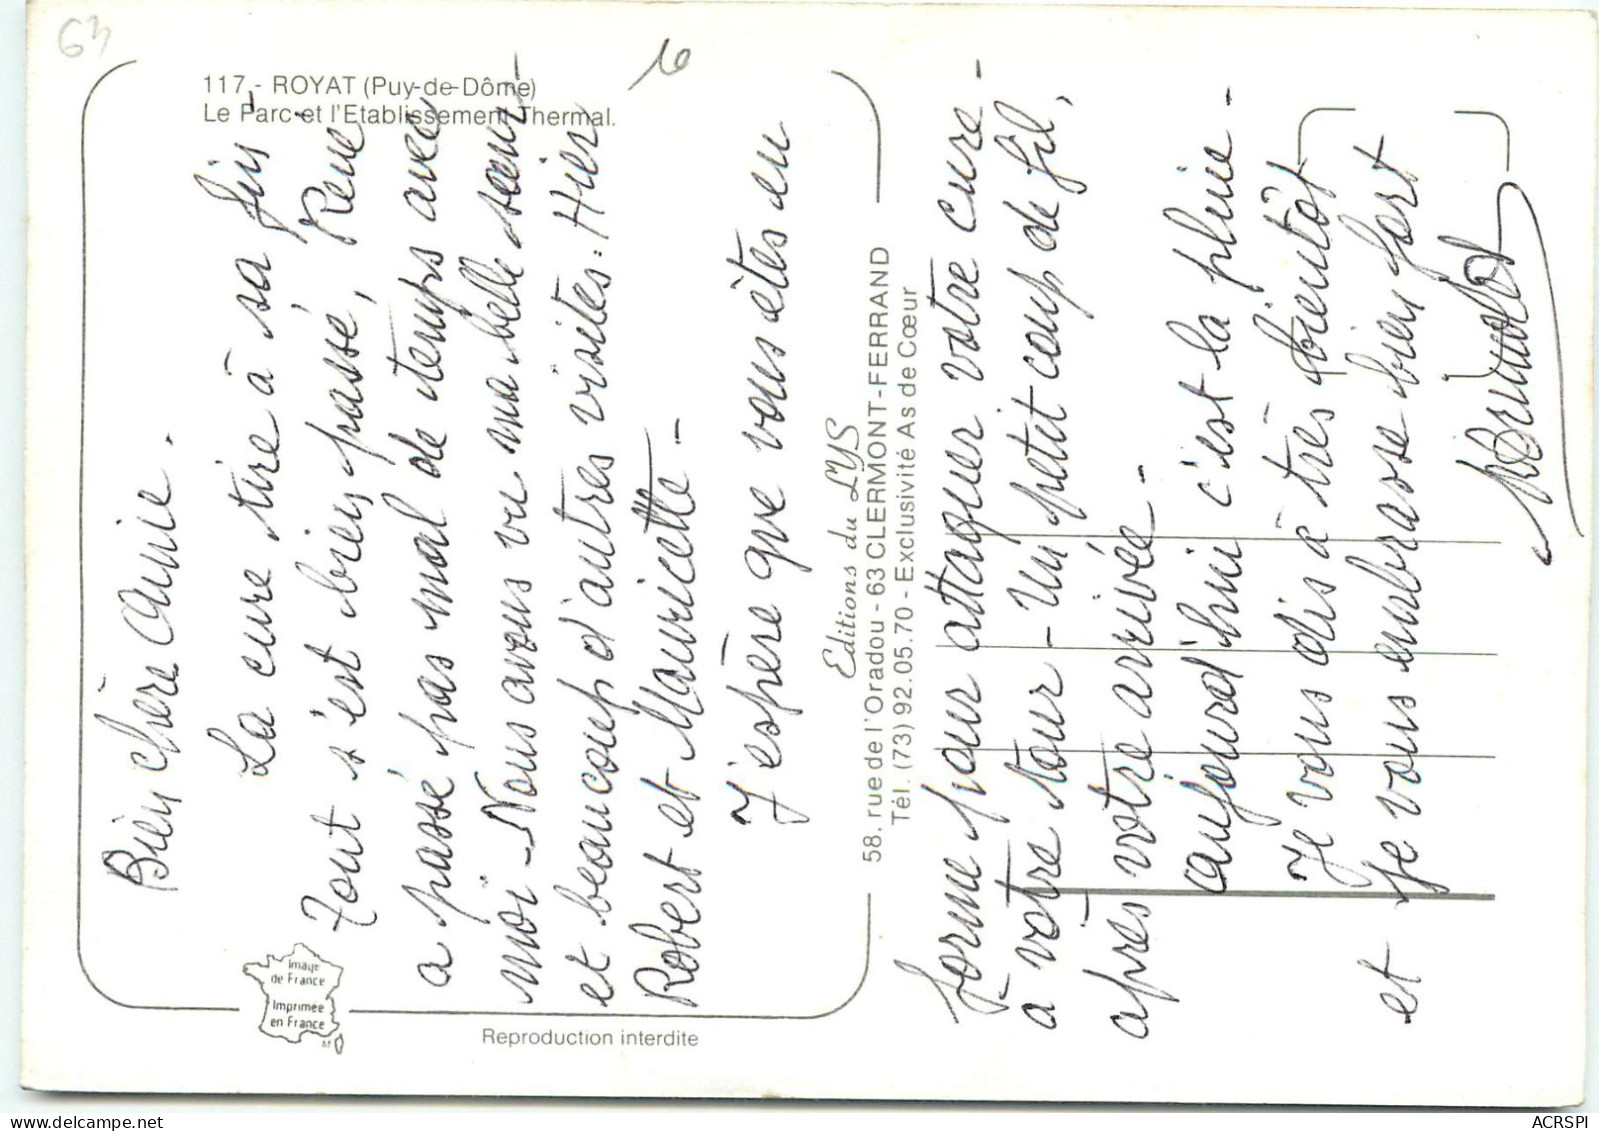 63
16
117 - ROYAT (Puy-de-Dôme)
Le Parc et l'Etablissement Thermal.
Bien chère Annie.
La cure tire à sa fin -
Tout s'est bien passé, René
a passé pas mal de temps avec
moi - Nous avons vu ma belle sœur -
et beaucoup d'autres visites : Hier
Robert et Mauricette -
J'espère que vous êtes en
Editions du LYS
58, rue de l'Oradou - 63 CLERMONT-FERRAND
Tél. (73) 92.05.70 - Exclusivité As de Cœur
forme pour attaquer votre cure -
à votre tour - Un petit coup de fil,
après votre arrivée -
aujourd'hui c'est la pluie -
Je vous dis à très bientôt
et je vous embrasse bien fort
Image
de France
Imprimée
en France
Reproduction interdite
delcampe.net
ACRSPI